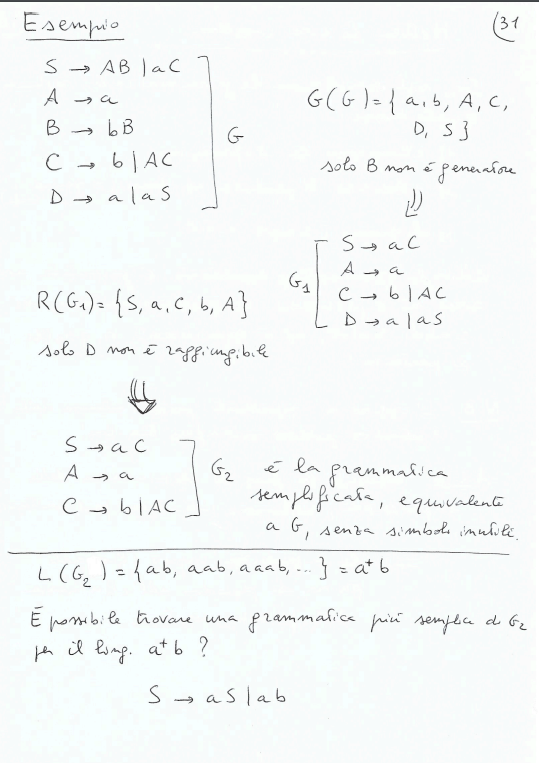 Esempio (31
S → AB | aC
A → a
B → bB
C → b | AC
D → a | aS
G
G(G) = { a, b, A, C,
D, S }
solo B non è generatore
⇓
G1
S → aC
A → a
C → b | AC
D → a | aS
R(G1) = {S, a, C, b, A}
solo D non è raggiungibile
⇓
S → aC
A → a
C → b | AC
G2 è la grammatica
semplificata, equivalente
a G, senza simboli inutili.
L(G2) = {ab, aab, aaab, ... } = a⁺b
È possibile trovare una grammatica più semplice di G2
per il ling. a⁺b ?
S → aS | ab